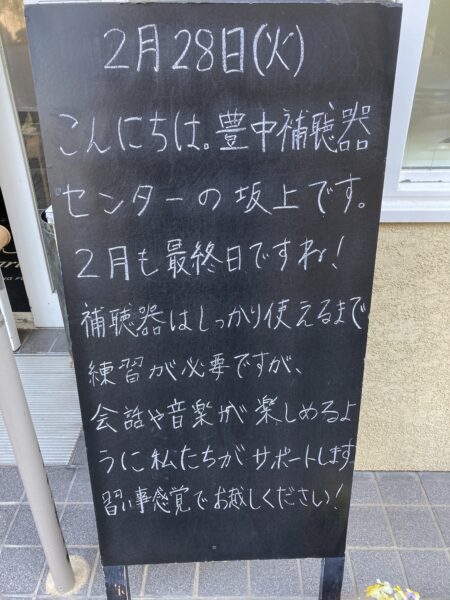 2月28日(火)
こんにちは。豊中補聴器
センターの坂上です。
2月も最終日ですね!
補聴器はしっかり使えるまで
練習が必要ですが、
会話や音楽が楽しめるよ
うに私たちがサポートします
習い事感覚でお越しください!